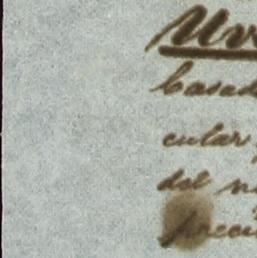 Uve
casad
cular
del n
preci